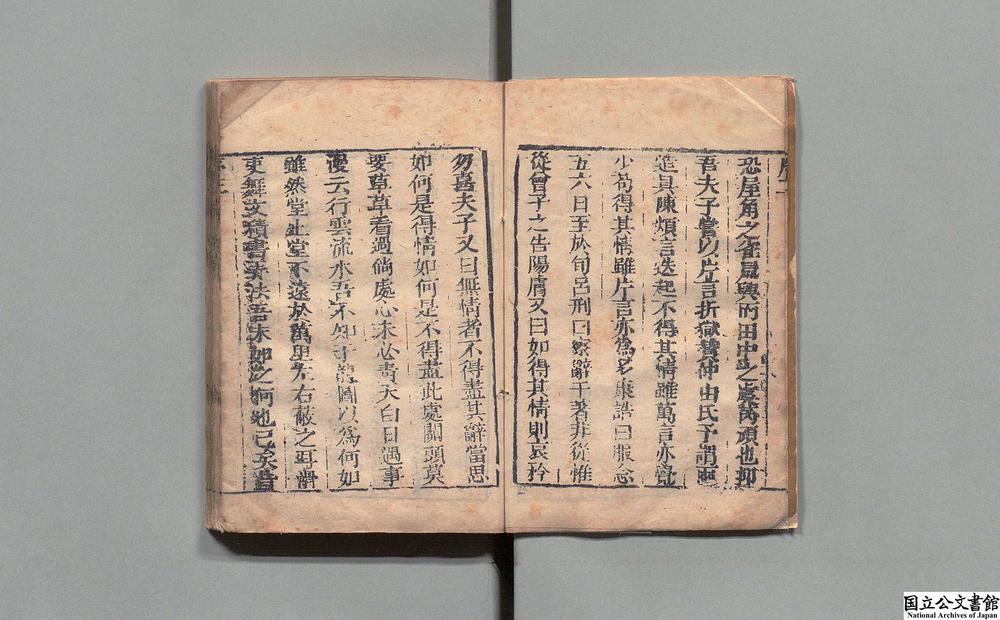 恐屋角之雀鼠興而田中之虞芮頑也抑
吾夫子嘗以片言折獄贊仲由氏予謂兩
造具陳煩言迭起不得其情雖萬言亦
少苟得其情雖片言亦為多康誥曰服念
五六日至於旬呂刑曰察辭于差非從惟
從曾子之告陽膚又曰如得其情則哀矜
勿喜夫子又曰無情者不得盡其辭當思
如何是得情如何是不得盡此處關頭莫
要草草看過倘處心未必青天白日遇事
漫云行雲流水吾不知于龍圖以為何如
雖然堂上堂下遠於萬里左右蔽之耳
吏舞文積書弄法吾末如之何也已矣
国立公文書館
National Archives of Japan